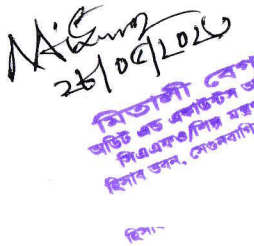 ২৮/০৫/২০২০
মিতালী বেগ
অডিট এন্ড একাউন্টস অ
সিএএফও/শিল্প মন্ত্র
হিসাব ভবন, সেগুনবাগি
হিসা